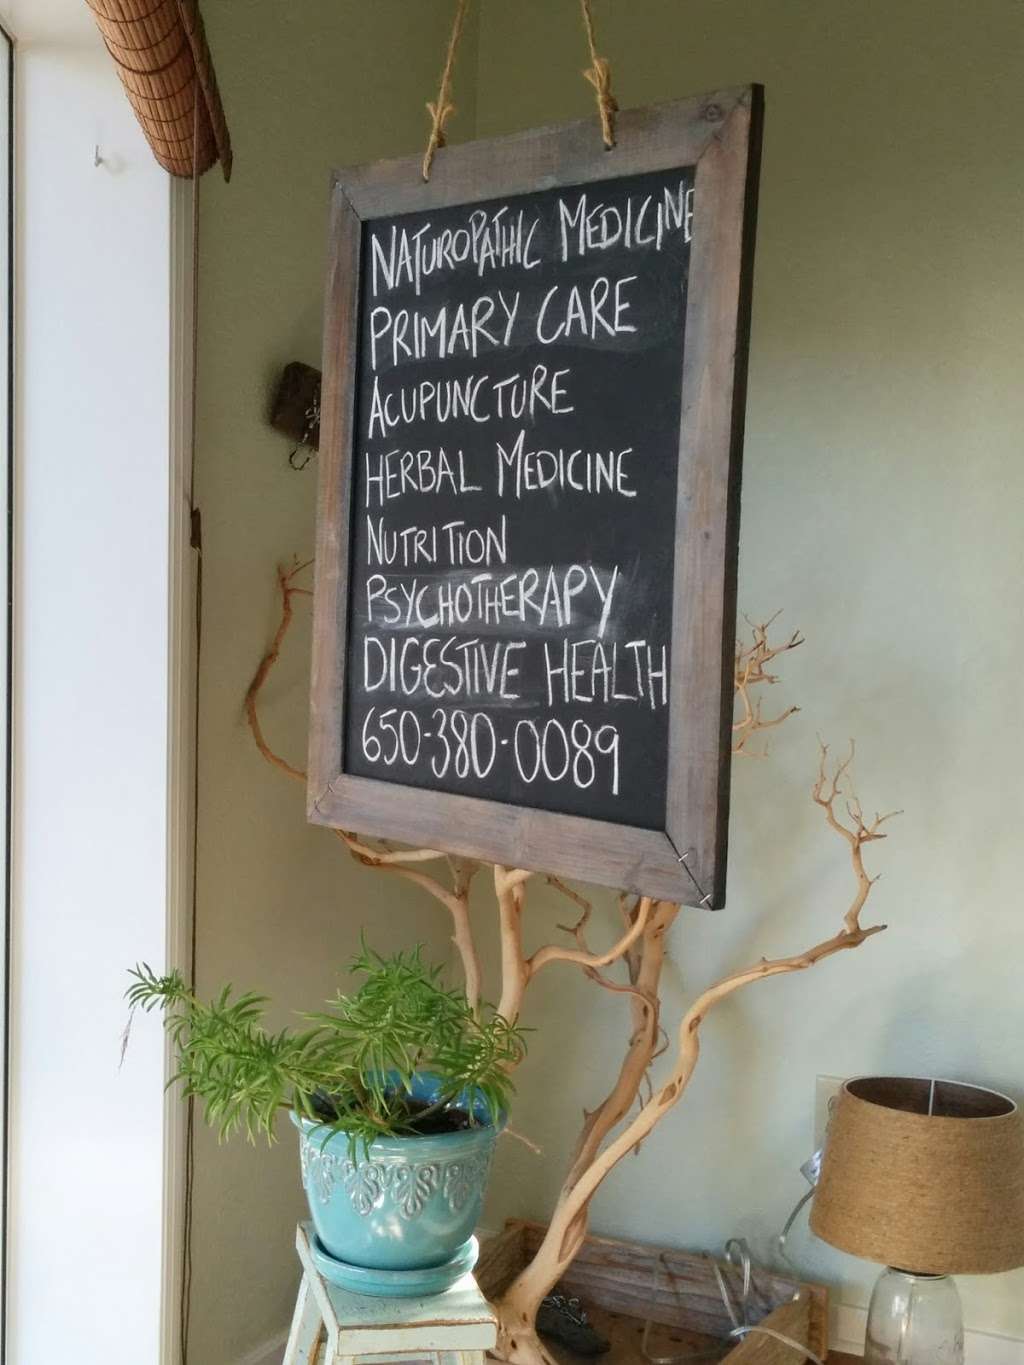 NATUROPATHIC MEDICINE
PRIMARY CARE
ACUPUNCTURE
HERBAL MEDICINE
NUTRITION
PSYCHOTHERAPY
DIGESTIVE HEALTH
650-380-0089